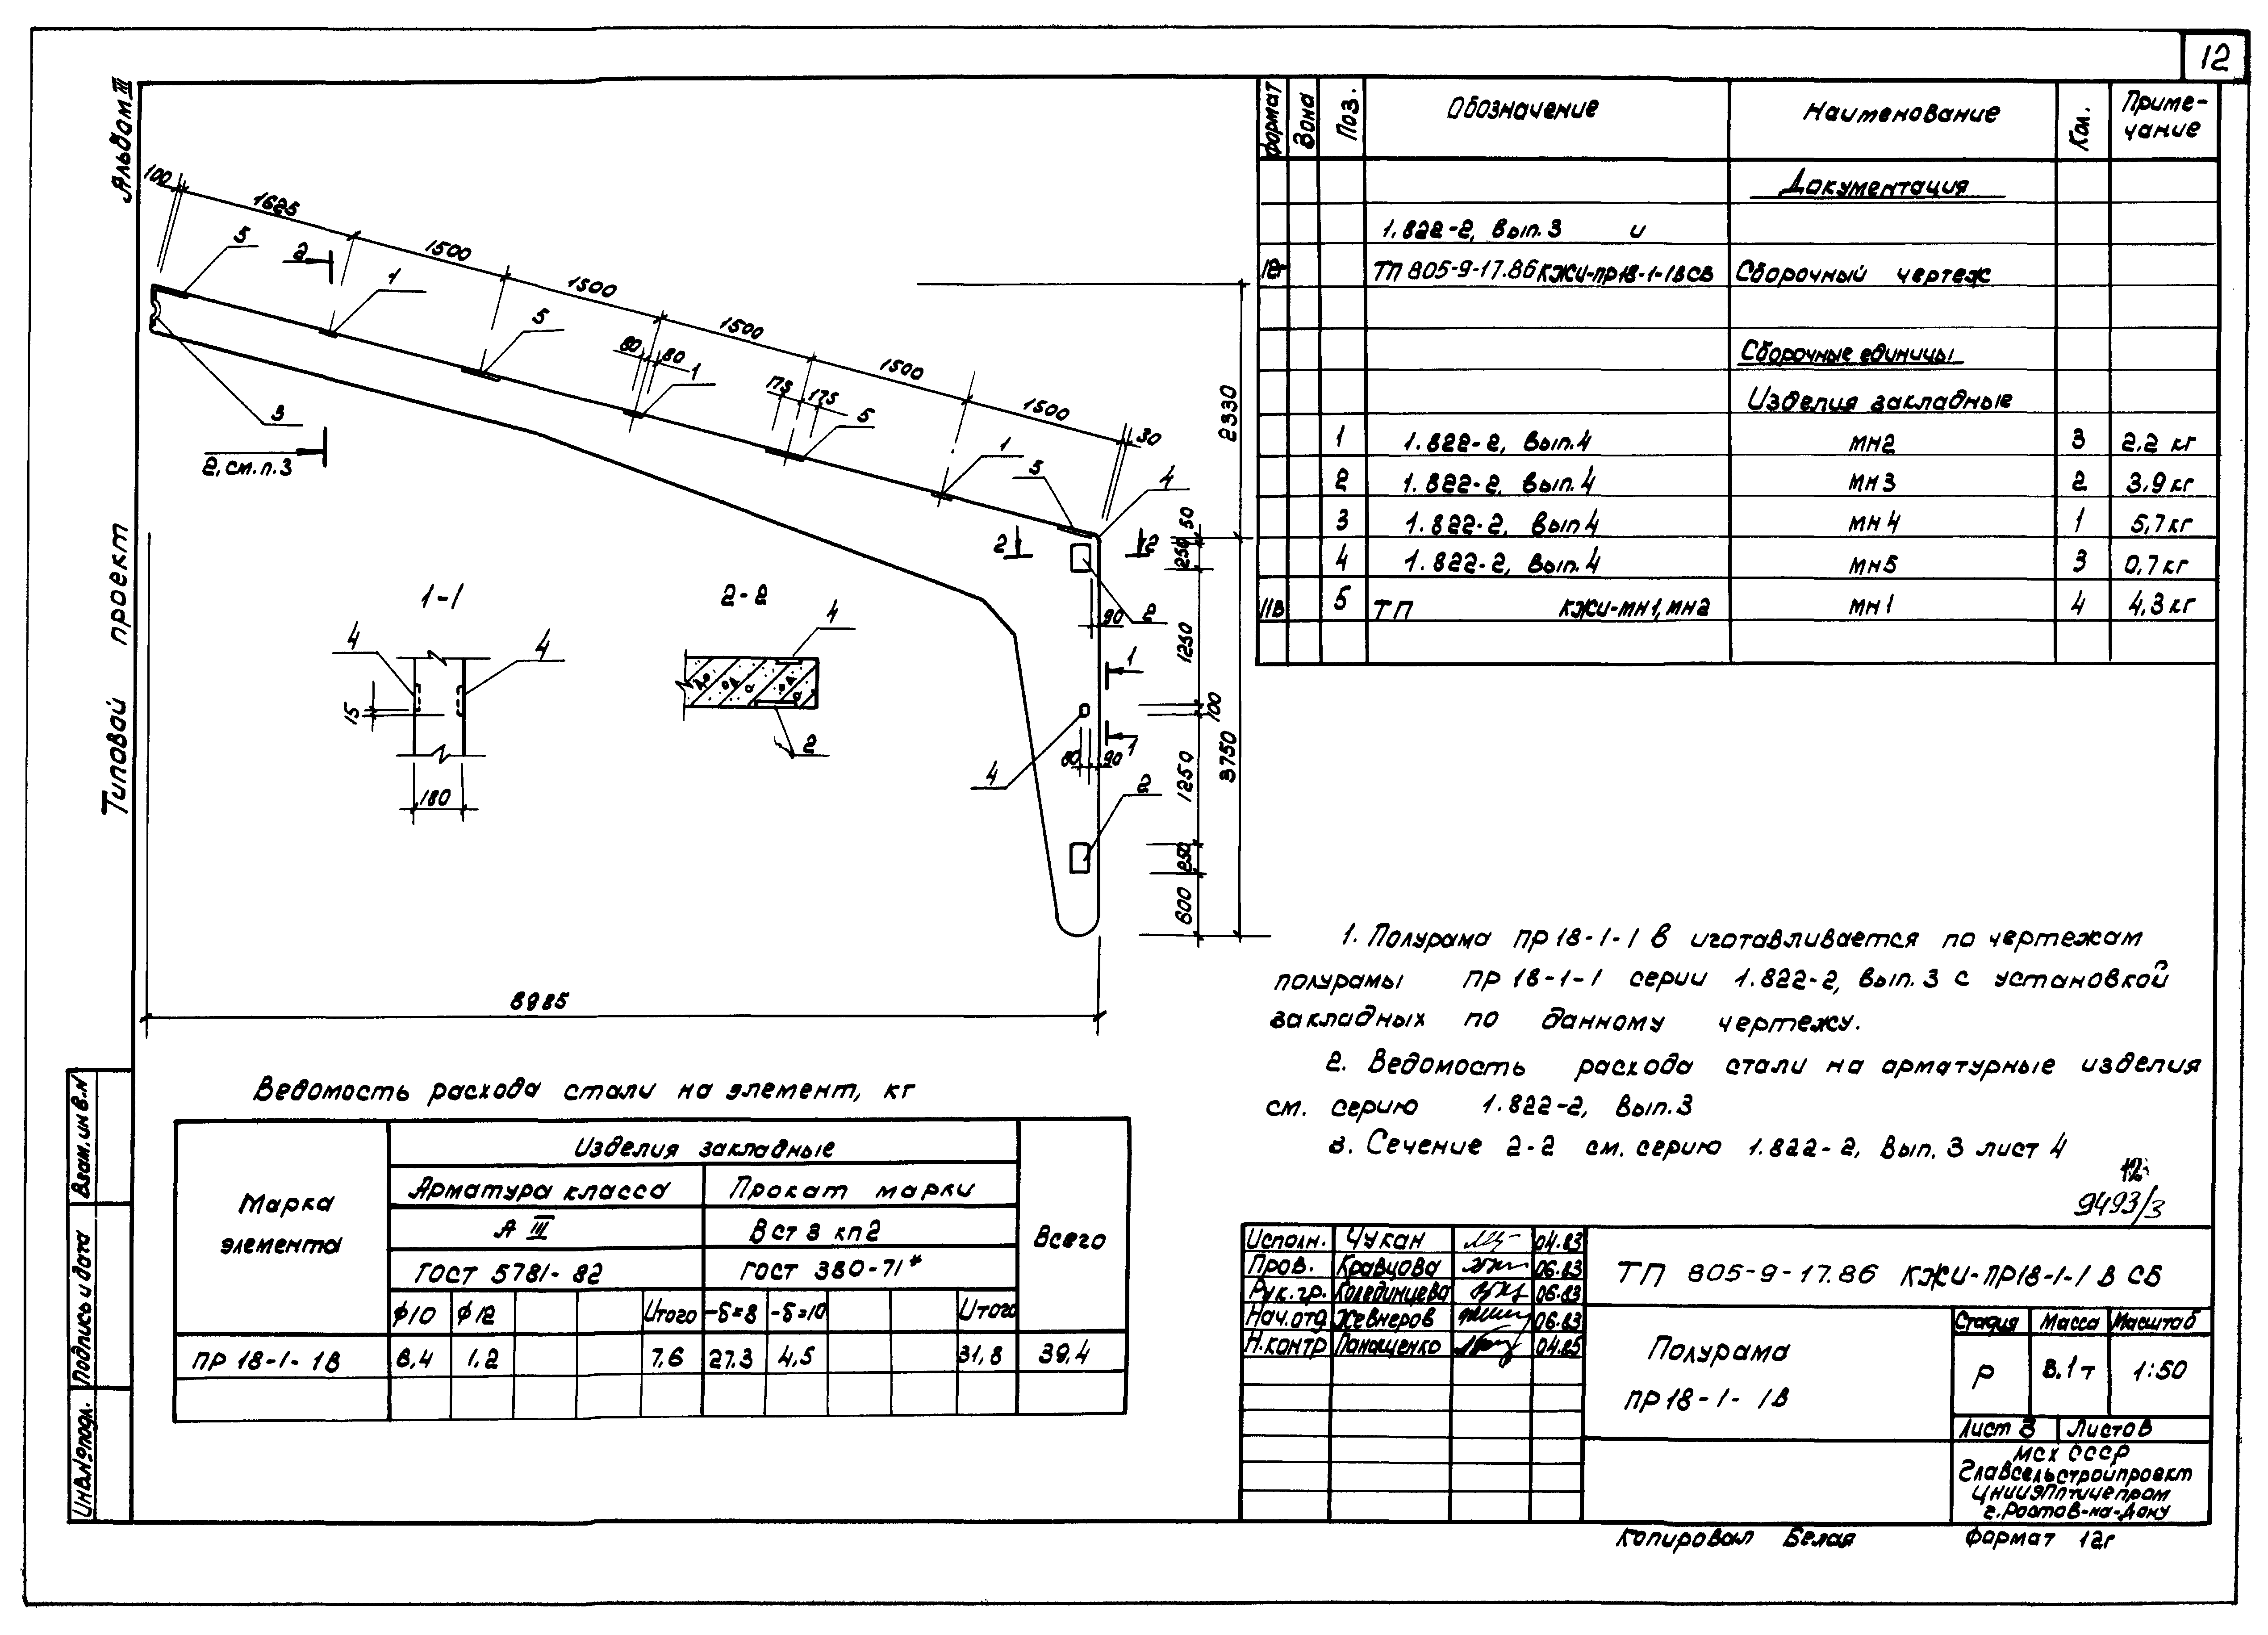 12
Альбом III
Типовой проект
100
1625
1500
1500
1500
1500
1500
30
5
2
1
5
80
80
1
175
175
5
1
5
4
3
2, см. п. 3
2
2
2330
50
250
90
2
1250
1
100
3750
4
80
90
1
1250
2
250
600
8985
1-1
4
4
15
180
2-2
4
2
Формат
Зона
Поз.
Обозначение
Наименование
Кол.
Приме-
чание
Документация
1.822-2, вып. 3 и
12г ТП 805-9-17.86 КЖИ-ПР18-1-1В СБ Сборочный чертеж
Сборочные единицы
Изделия закладные
1 1.822-2, вып. 4 МН2 3 2,2 кг
2 1.822-2, вып. 4 МН3 2 3,9 кг
3 1.822-2, вып 4 МН4 1 5,7 кг
4 1.822-2, вып. 4 МН5 3 0,7 кг
11в 5 ТП КЖИ-МН1, МН2 МН1 4 4,3 кг
1. Полурама ПР18-1-1В изготавливается по чертежам
полурамы ПР18-1-1 серии 1.822-2, вып. 3 с установкой
закладных по данному чертежу.
2. Ведомость расхода стали на арматурные изделия
см. серию 1.822-2, вып. 3
3. Сечение 2-2 см. серию 1.822-2, вып. 3 лист 4
12
9493/3
Ведомость расхода стали на элемент, кг
Марка
элемента
Изделия закладные
Арматура класса
Прокат марки
А III
В Ст 3 кп2
ГОСТ 5781-82
ГОСТ 380-71*
Всего
ф10 ф12 Итого -δ=8 -δ=10 Итого
ПР 18-1-1В 6,4 1,2 7,6 27,3 4,5 31,8 39,4
Исполн. Чукан 04.83
Пров. Кравцова 06.83
Рук. гр. Колединцева 06.83
Нач. отд Жевнеров 06.83
Н. контр Панащенко 04.85
ТП 805-9-17.86 КЖИ-ПР18-1-1В СБ
Полурама
ПР18-1-1В
Стадия Масса Масштаб
Р 3,1т 1:50
Лист 3 Листов
МСХ СССР
Главсельстройпроект
ЦНИИЭПптицепром
г. Ростов-на-Дону
Копировал Белая Формат 12г
Взам. инв. N
Подпись и дата
Инв. № подл.